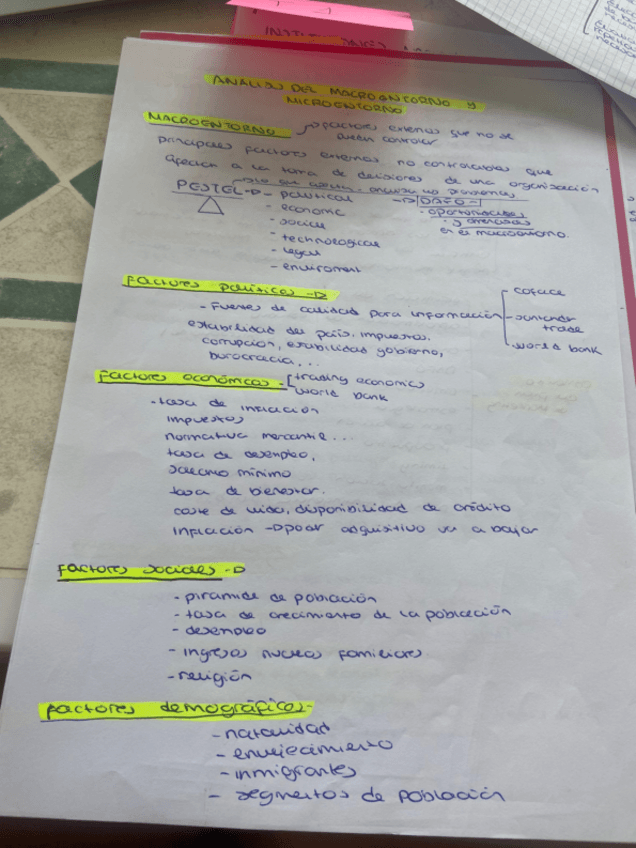 ANÁLISIS DEL MACROENTORNO Y
MICROENTORNO
MACROENTORNO → factores externos que no se
pueden controlar
principales factores externos no controlables que
afectan a la toma de decisiones de una organización
PESTEL → - political
- economic
- social
- technological
- legal
- enviroment
→ DAFO →
· oportunidades
y amenazas
en el macroentorno.
Factores políticos →
- Fuentes de calidad para información
coface
santander
trade
world bank
estabilidad del país, impuestos,
corrupción, estabilidad gobierno,
burocracia, ...
Factores económicos - [trading economics
world bank
- tasa de inflación
impuestos
normativa mercantil ...
tasa de desempleo,
salario mínimo
tasa de bienestar.
coste de vida, disponibilidad de crédito
inflación → poder adquisitivo va a bajar
Factores sociales →
- piramide de población
- tasa de crecimiento de la población
- desempleo
- ingresos nucleos familiares
- religión
Factores demográficos -
- natalidad
- envejecimiento
- inmigrantes
- segmentos de población